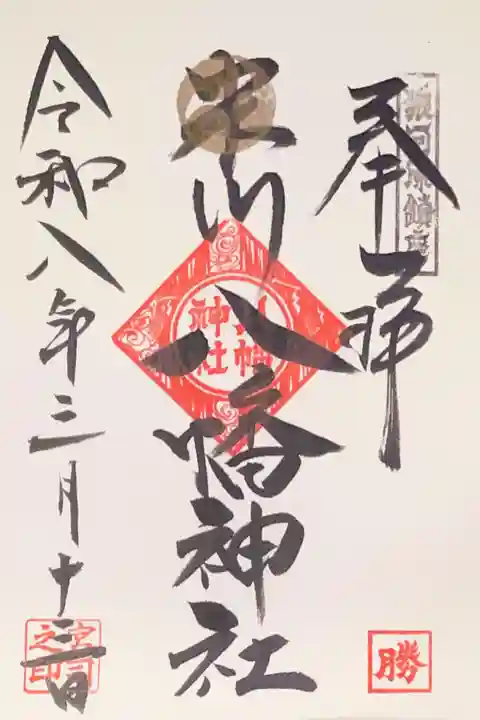 奉拝
狼河原鎮座
勝
米川八幡神社
八幡
神社
令和八年三月十二日
宮司
之印